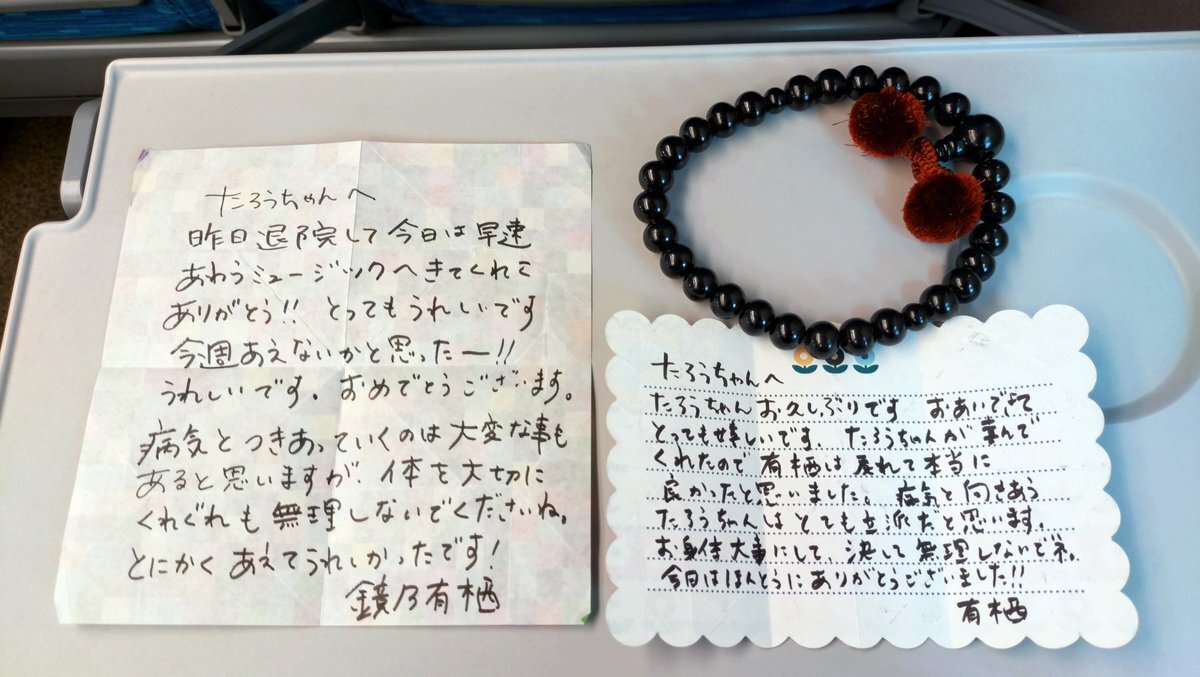 たろうちゃんへ
昨日退院して今日は早速
あわうミュージックへきてくれて
ありがとう!! とってもうれしいです
今週あえないかと思ったー!!
うれしいです。おめでとうございます。
病気とつきあっていくのは大変な事も
あると思いますが、体を大切に
くれぐれも無理しないでくださいね。
とにかくあえてうれしかったです!
鏡乃有栖
たろうちゃんへ
たろうちゃんお久しぶりです おあいできて
とっても嬉しいです。たろうちゃんが喜んで
くれたので有栖は戻れて本当に
良かったと思いました。病気と向きあう
たろうちゃんはとても立派だと思います。
お身体大事にして、決して無理しないでネ。
今日はほんとうにありがとうございました!!
有栖